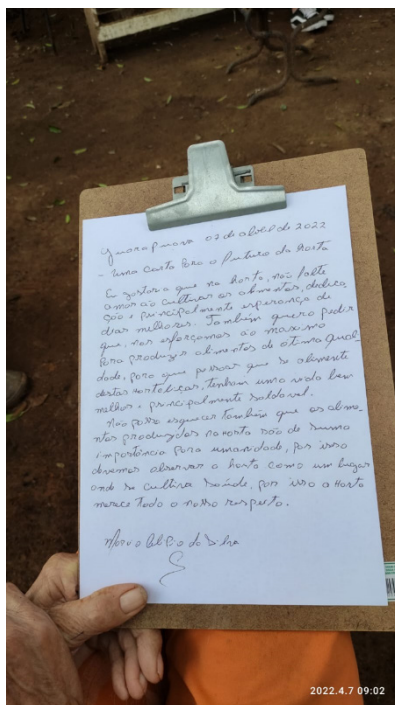 Guarapuava 07 de abril de 2022
- Uma carta para o futuro da Horta
Eu gostaria que na horta, não falte
amor ao cultivar os alimentos, dedica-
ção e principalmente esperança de
dias melhores. Também quero pedir
que, nos esforçamos ao maximo
para produzir alimentos de ótima quali-
dade, para que pessoas que se alimente
destas hortaliças, tenham uma vida bem
melhor e principalmente saldável.
Não posso esquecer também que os alime-
ntos produzidos na horta são de suma
importância para umanidade, por isso
devemos observar a horta como um lugar
onde se cultiva saúde, por isso a Horta
merece todo o nosso respeito.
da Silva
2022.4.7 09:02